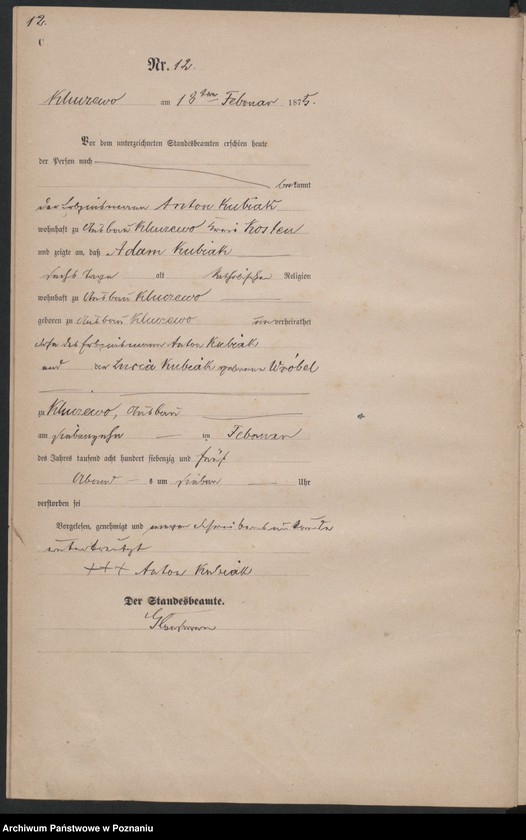 12.
C
Nr. 12.
Kluczewo am 18ten Februar 1875.
Vor dem unterzeichneten Standesbeamten erschien heute
der Person nach
bekannt
der Anton Kubiak
wohnhaft zu Ausbau Kluczewo Kreis Kosten
und zeigte an, daß Adam Kubiak
sechs Tage alt katholischer Religion
wohnhaft zu Ausbau Kluczewo
geboren zu Ausbau Kluczewo unverheirathet
Sohn des Anton Kubiak
und der Lucia Kubiak geborene Wróbel
zu Kluczewo, Ausbau
am siebenzehn ten Februar
des Jahres tausend acht hundert siebenzig und fünf
Abend s um sieben Uhr
verstorben sei
Vorgelesen, genehmigt und wegen Schreibensunkunde
unterkreuzt
+++ Anton Kubiak
Der Standesbeamte.
Archiwum Państwowe w Poznaniu